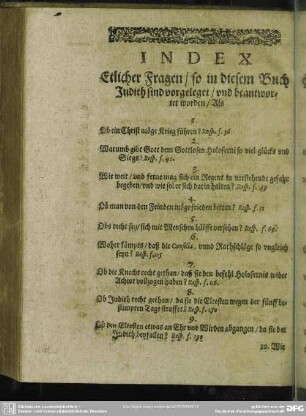 INDEX
Etlicher Fragen / so in diesem Buch
Judith sind vorgeleget / vnd beantwor-
ter worden / Als
1.
Ob ein Christ möge Krieg führen? Resp. f.
2.
Warumb gibt Gott dem Gottlosen Holoferni so viel glücks vnd
Siegs? Resp. f.
3.
Wie weit / vnd ferne mag sich ein Regent in vorstehende gefahr
begeben / vnd wie sol er sich darin halten? Resp. f.
4.
Ob man von den Feinden möge frieden bitten? Resp. f.
5.
Obs recht sey / sich mit Menschen hülffe versehen? Resp. f.
6.
Woher kömpts / daß die Consilia, vnnd Rathschläge so vngleich
seyn? Resp. f.
7.
Ob die Knechte recht gethan / daß sie den befehl Holofernis wider
Achior volzogen haben? Resp. f.
8.
Ob Judith recht gethan / da sie die Eltesten wegen der fünff be-
stimpten Tage straffet? Resp. f.
9.
Ob den Eltesten etwas an Ehr vnd Wirden abgangen / da sie der
Judith beyfallen? Resp. f.
10. Wie